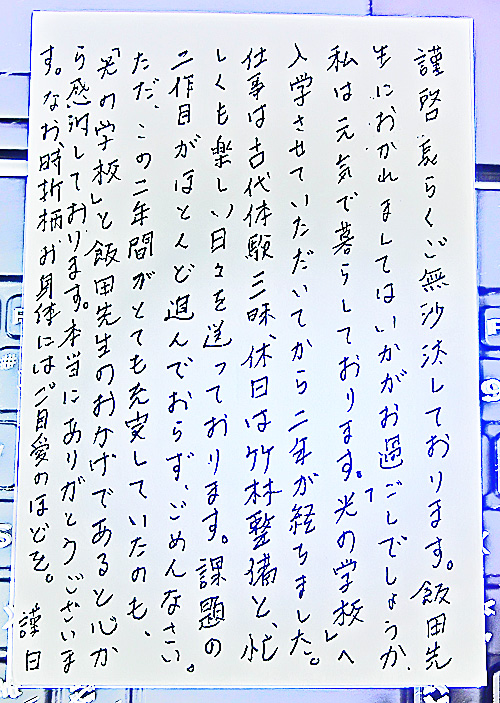 謹啓 長らくご無沙汰しております。飯田先
生におかれましてはいかがお過ごしでしょうか。
私は元気で暮らしております。「光の学校」へ
入学させていただいてから二年が経ちました。
仕事は古代体験三昧、休日は竹林整備と、忙
しくも楽しい日々を送っております。課題の
二作目がほとんど進んでおらず、ごめんなさい。
ただ、この二年間がとても充実していたのも、
「光の学校」と飯田先生のおかげであると心か
ら感謝しております。本当にありがとうございま
す。なお、時折柄お身体にはご自愛のほどを。 謹白